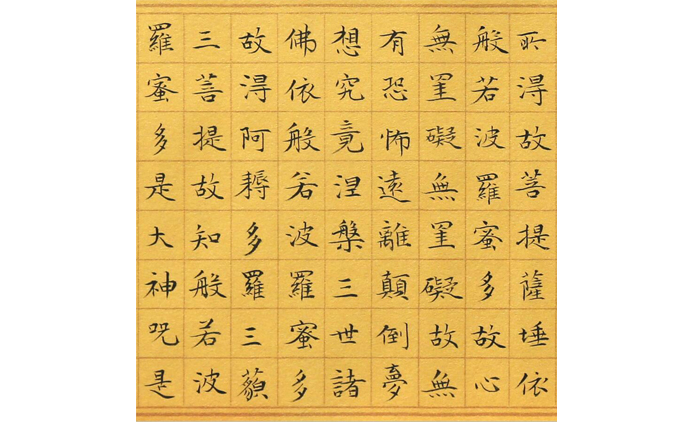 所淂故菩提薩埵依
般若波羅蜜多故心
無罣礙無罣礙故無
有恐怖遠離顛倒夢
想究竟涅槃三世諸
佛依般若波羅蜜多
故淂阿耨多羅三藐
三菩提故知般若波
羅蜜多是大神呪是